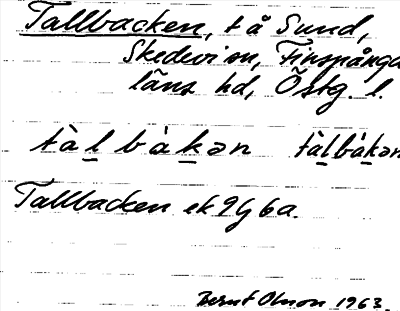 Tallbacken, t å Sund,
Skedevi sn, Finspånga
läns hd, Östg. l.
tàl bàkən tàlbàkən
Tallbacken ek 9G 6a.
Bernt Olsson 1963.